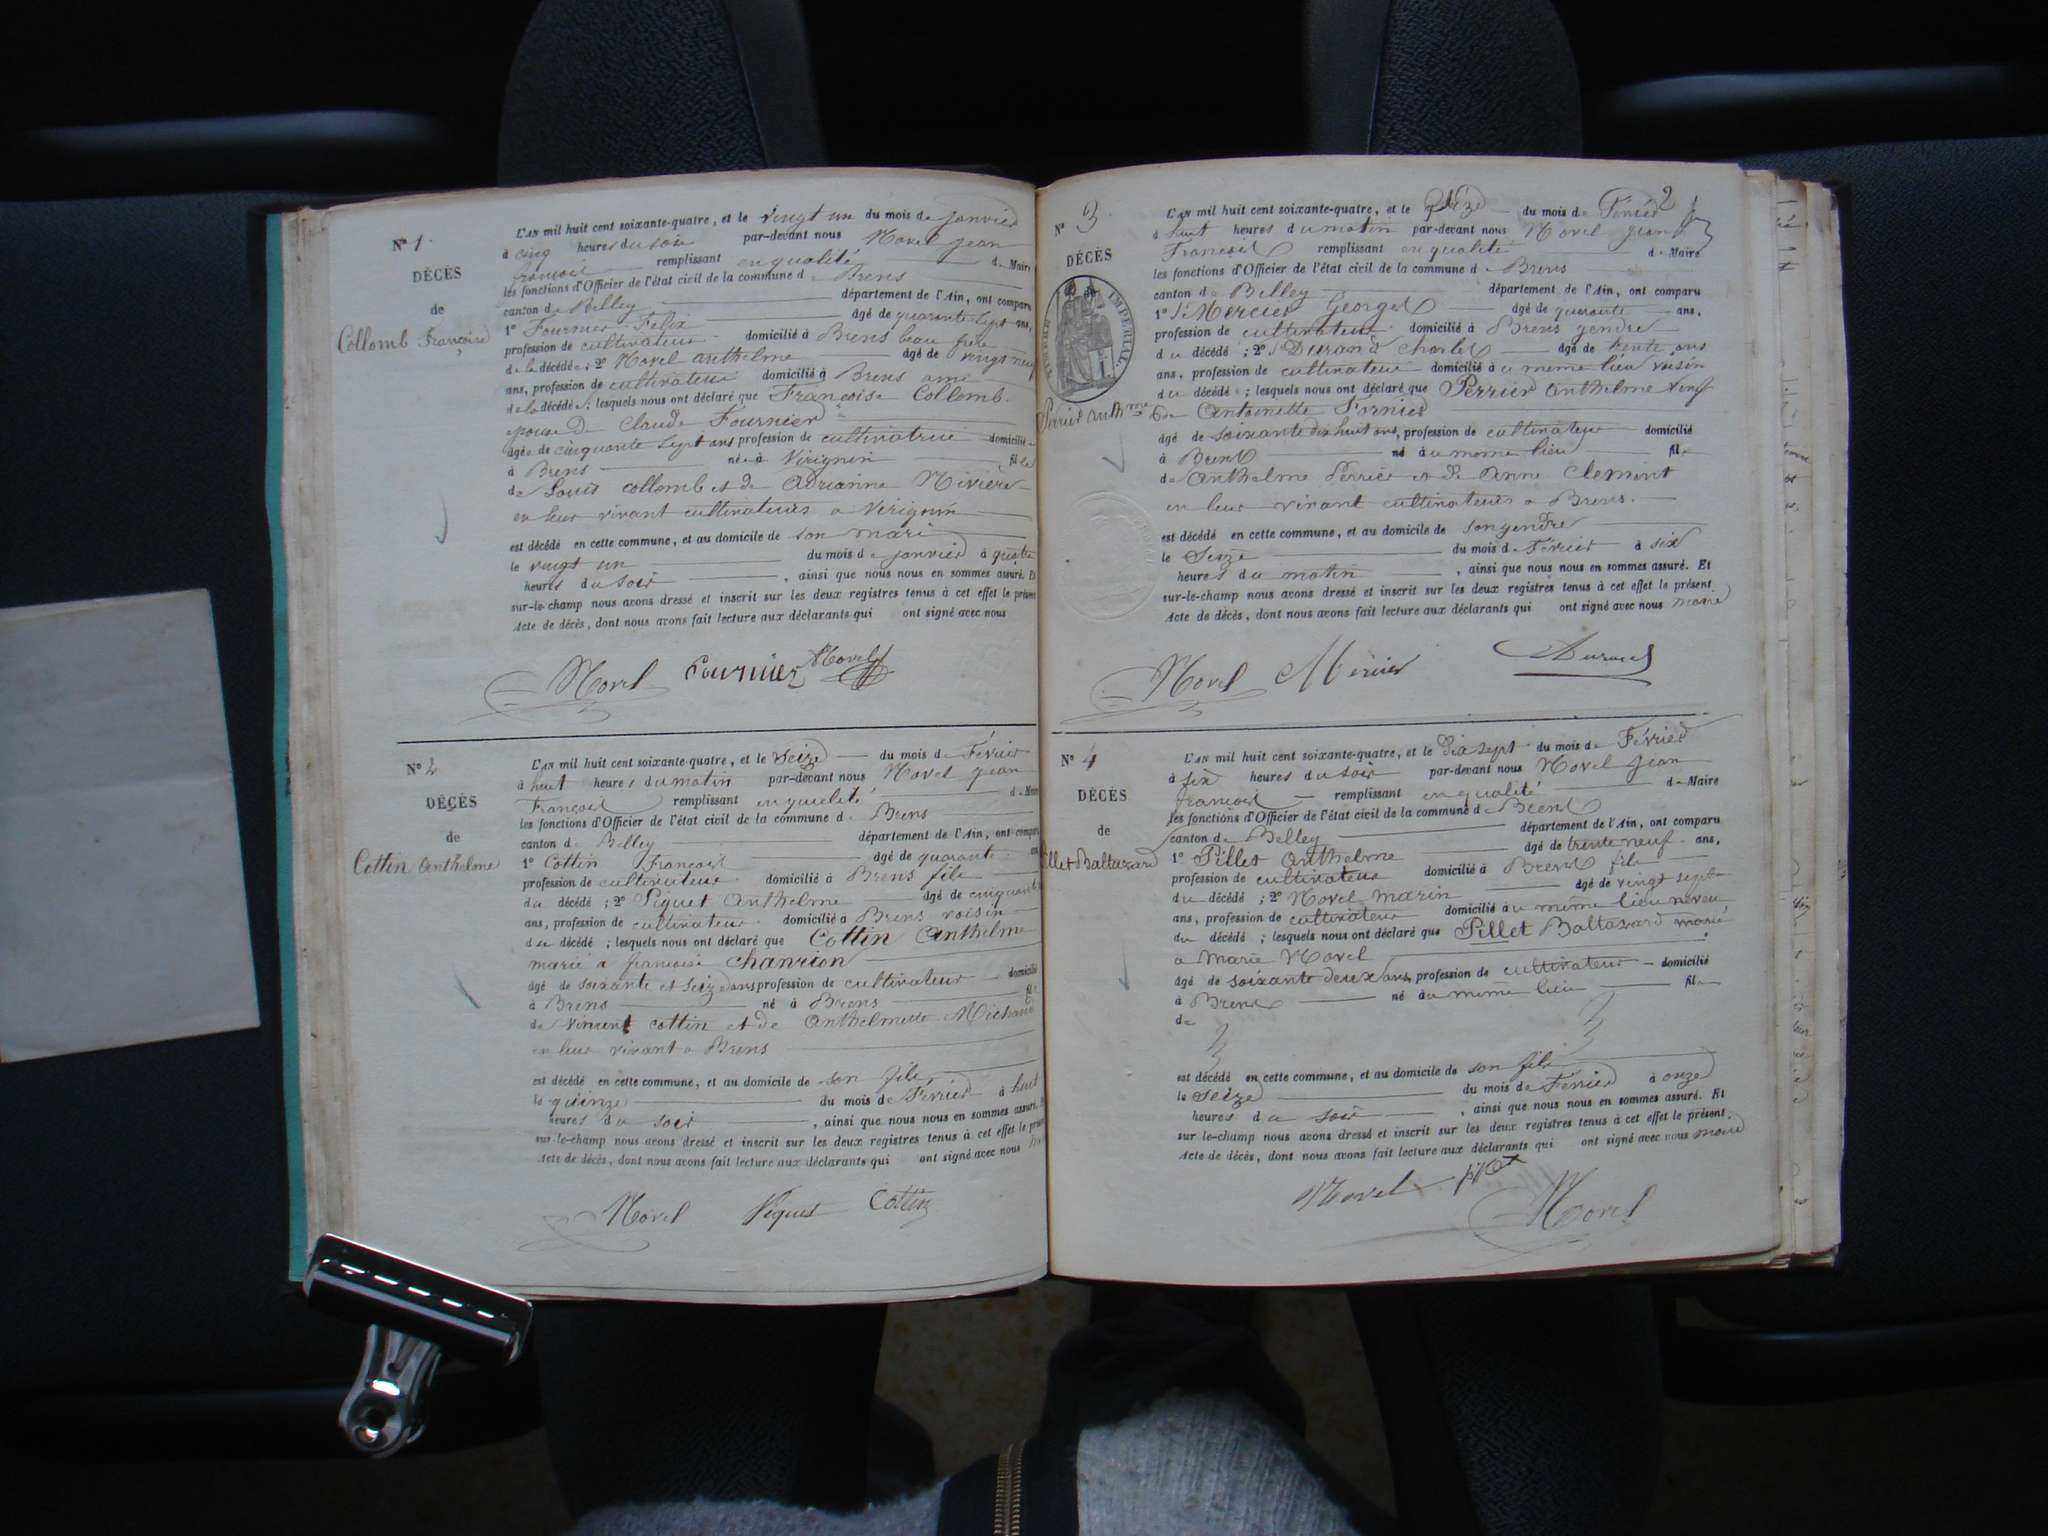 N° 1
DÉCÈS
de
Collomb Françoise
L'AN mil huit cent soixante-quatre, et le vingt un du mois de janvier
à cinq heures du soir par-devant nous Morel jean
françois remplissant en qualité de Maire
les fonctions d'Officier de l'état civil de la commune de Brens
canton de Belley département de l'Ain, ont comparu
1° Fournier Felix âgé de quarante sept ans,
profession de cultivateur domicilié à Brens beau frère
de la décédée; 2° Morel anthelme âgé de vingt neuf
ans, profession de cultivateur domicilié à Brens ami
de la décédée; lesquels nous ont déclaré que Françoise Collomb
epouse De Claude Fournier
âgée de cinquante sept ans profession de cultivatrice domiciliée
à Brens née à Virignin fille
de Louis collomb et de Adrianne Rivière
en leur vivant cultivateurs a Virignin
est décédé en cette commune, et au domicile de son mari
le vingt un du mois de janvier à quatre
heures du soir, ainsi que nous nous en sommes assuré. Et
sur-le-champ nous avons dressé et inscrit sur les deux registres tenus à cet effet le présent
Acte de décès, dont nous avons fait lecture aux déclarants qui ont signé avec nous
Morel Fournier Morel
N° 2
DÉCÈS
de
Cottin Anthelme
L'AN mil huit cent soixante-quatre, et le seize du mois de Février
à huit heures du matin par-devant nous Morel jean
François remplissant en qualité de Maire
les fonctions d'Officier de l'état civil de la commune de Brens
canton de Belley département de l'Ain, ont comparu
1° Cottin françois âgé de quarante ans
profession de cultivateur domicilié à Brens fils
du décédé; 2° Piguet Anthelme âgé de cinquante
ans, profession de cultivateur domicilié à Brens voisin
du décédé; lesquels nous ont déclaré que Cottin Anthelme
marié a françoise chanvion
âgé de soixante et seize ans profession de cultivateur domicilié
à Brens né à Brens fils
de Vincent cottin et de Anthelmette Michaud
en leur vivant a Brens
est décédé en cette commune, et au domicile de son fils
le quinze du mois de Février à huit
heures du soir, ainsi que nous nous en sommes assuré. Et
sur-le-champ nous avons dressé et inscrit sur les deux registres tenus à cet effet le présent
Acte de décès, dont nous avons fait lecture aux déclarants qui ont signé avec nous
Morel Piguet Cottin
2
N° 3
DÉCÈS
IMPERIAL
Perrier Anthme
L'AN mil huit cent soixante-quatre, et le seize du mois de Février
à huit heures du matin par-devant nous Morel jean
François remplissant en qualité de Maire
les fonctions d'Officier de l'état civil de la commune de Brens
canton de Belley département de l'Ain, ont comparu
1° Mercier Georges âgé de quarante ans,
profession de cultivateur domicilié à Brens gendre
du décédé; 2° Durand Charles âgé de trente ans
ans, profession de cultivateur domicilié au meme lieu voisin
du décédé; lesquels nous ont déclaré que Perrier Anthelme veuf
de Antoinette Fornier
âgé de soixante dix huit ans, profession de cultivateur domicilié
à Brens né au meme lieu fils
de Anthelme Perrier et de Anne Clement
en leur vivant cultivateurs a Brens.
est décédé en cette commune, et au domicile de son gendre
le Seize du mois de Février à six
heures du matin, ainsi que nous nous en sommes assuré. Et
sur-le-champ nous avons dressé et inscrit sur les deux registres tenus à cet effet le présent
Acte de décès, dont nous avons fait lecture aux déclarants qui ont signé avec nous maire
Morel Mercier Durand
N° 4
DÉCÈS
de
Pillet Baltazard
L'AN mil huit cent soixante-quatre, et le dix sept du mois de Février
à six heures du soir par-devant nous Morel jean
françois remplissant en qualité de Maire
les fonctions d'Officier de l'état civil de la commune de Brens
canton de Belley département de l'Ain, ont comparu
1° Pillet Anthelme âgé de trente neuf ans,
profession de cultivateur domicilié à Brens fils
du décédé; 2° Morel Marin âgé de vingt sept
ans, profession de cultivateur domicilié au même lieu neveu,
du décédé; lesquels nous ont déclaré que Pillet Baltazard marié
a Marie Morel
âgé de soixante deux ans, profession de cultivateur domicilié
à Brens né au meme lieu fils
de
est décédé en cette commune, et au domicile de son fils
le Seize du mois de Février à onze
heures du soir, ainsi que nous nous en sommes assuré. Et
sur-le-champ nous avons dressé et inscrit sur les deux registres tenus à cet effet le présent
Acte de décès, dont nous avons fait lecture aux déclarants qui ont signé avec nous maire
Morel pillet
Morel